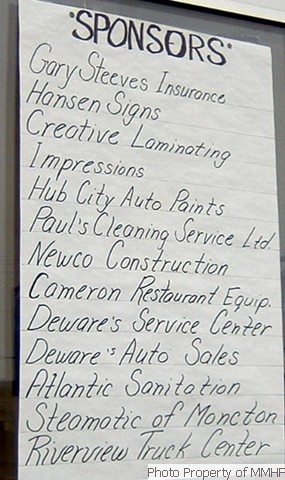 "SPONSORS"
Gary Steeves Insurance
Hansen Signs
Creative Laminating
Impressions
Hub City Auto Paints
Paul's Cleaning Service Ltd.
Newco Construction
Cameron Restaurant Equip.
Deware's Service Center
Deware's Auto Sales
Atlantic Sanitation
Steamatic of Moncton
Riverview Truck Center
Photo Property of MMHF